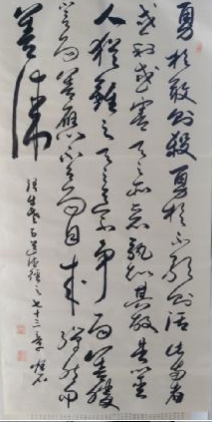 勇於敢則殺勇於不敢則活此兩者
或利或害天之所惡孰知其故是以聖
人猶難之天之道不爭而善勝不
言而善應不召而自來繟然而
善謀
道德經之七十三章